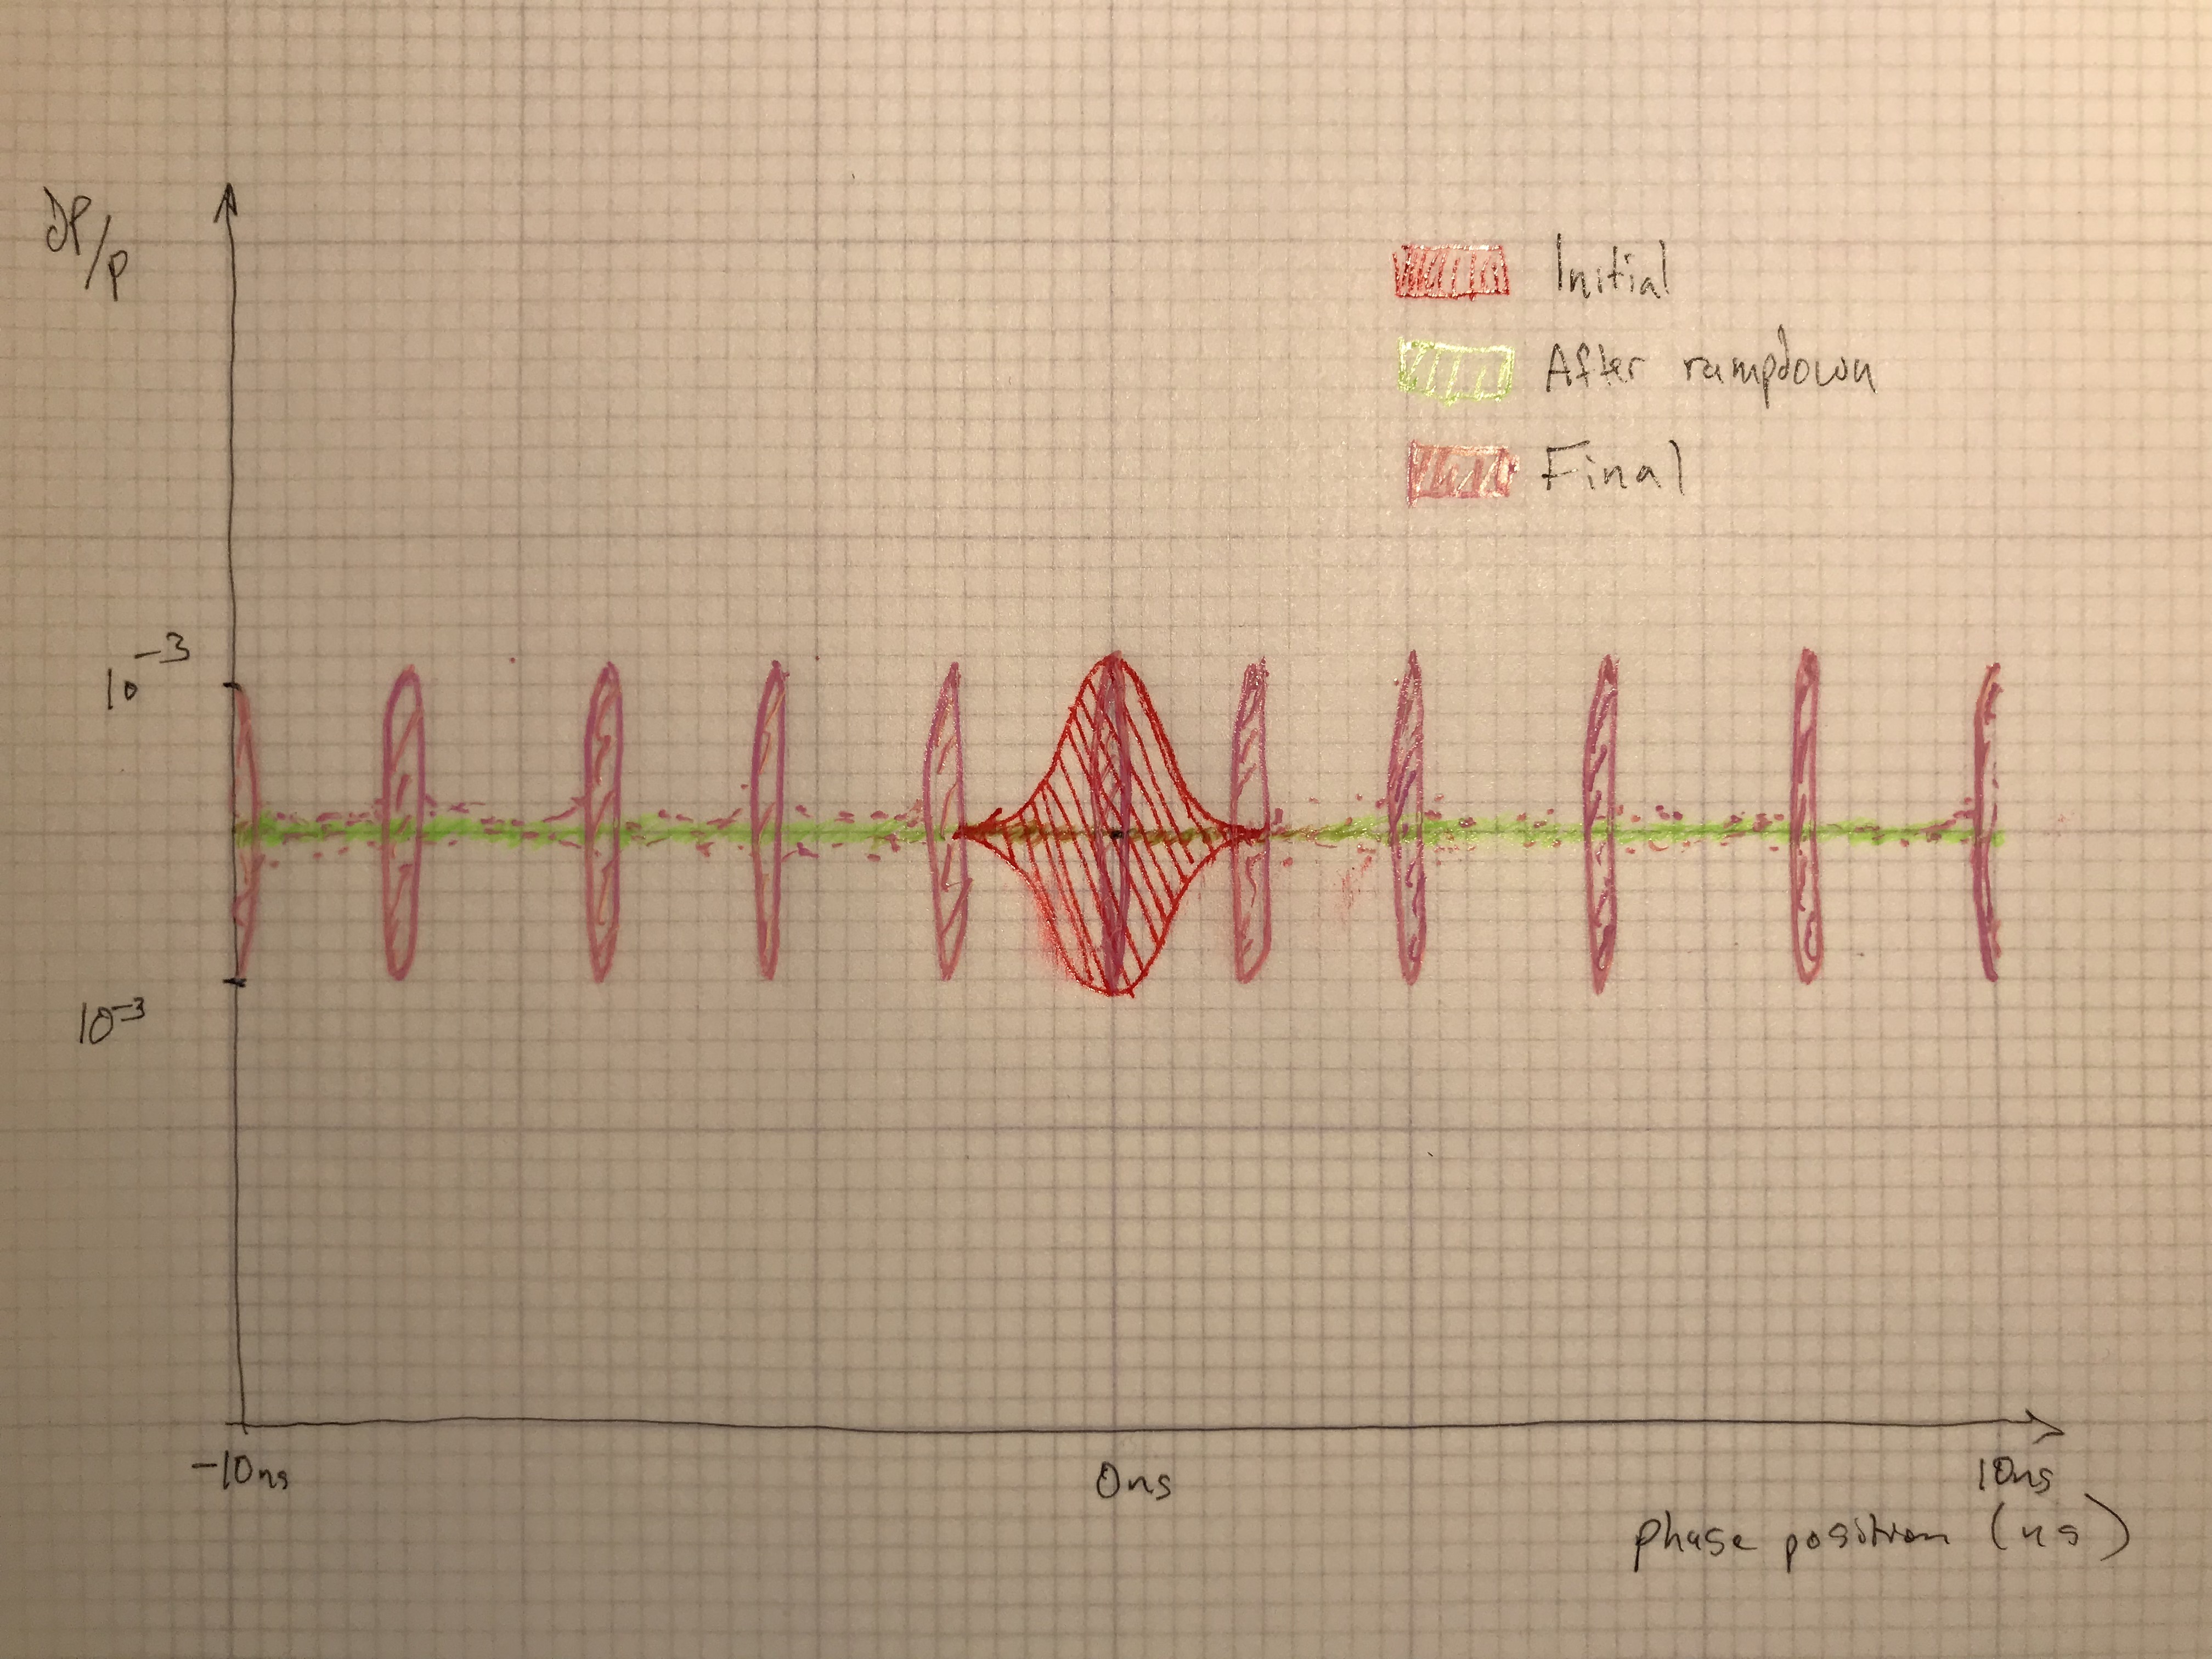 DP/P
Initial
After rampdown
Final
10^-3
10^-3
-10ns
0ns
10ns
phase position (ns)